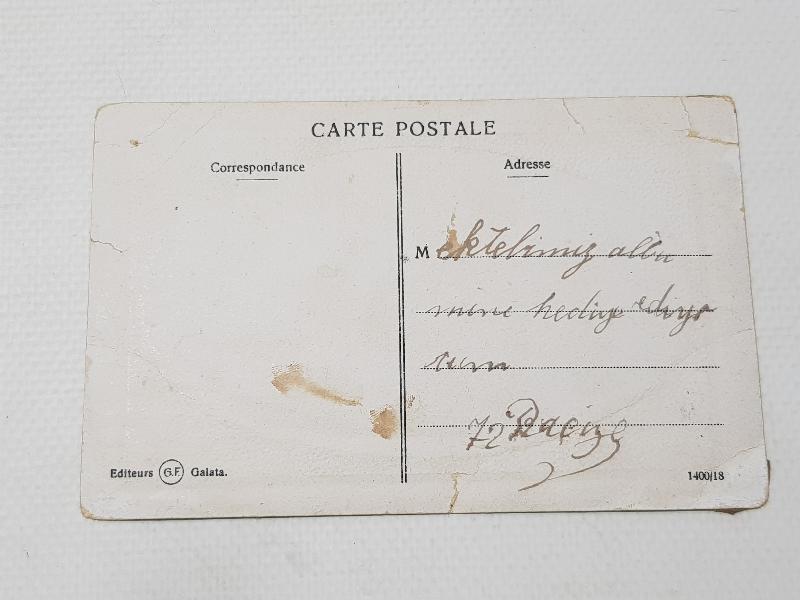 CARTE POSTALE
Correspondance
Adresse
Mektebimiz albü
mine hediye ediyo
rum
72
Editeurs G.F. Galata.
1400/18